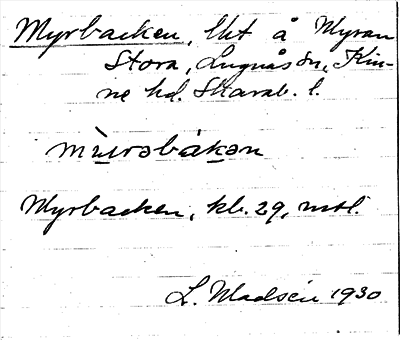 Myrbacken, lht å Myran
Stora, Lugnås sn, Kin-
ne hd. Skarab. l.
mùrəbákən
Myrbacken, kb. 29, mtl.
L. Madsén 1930